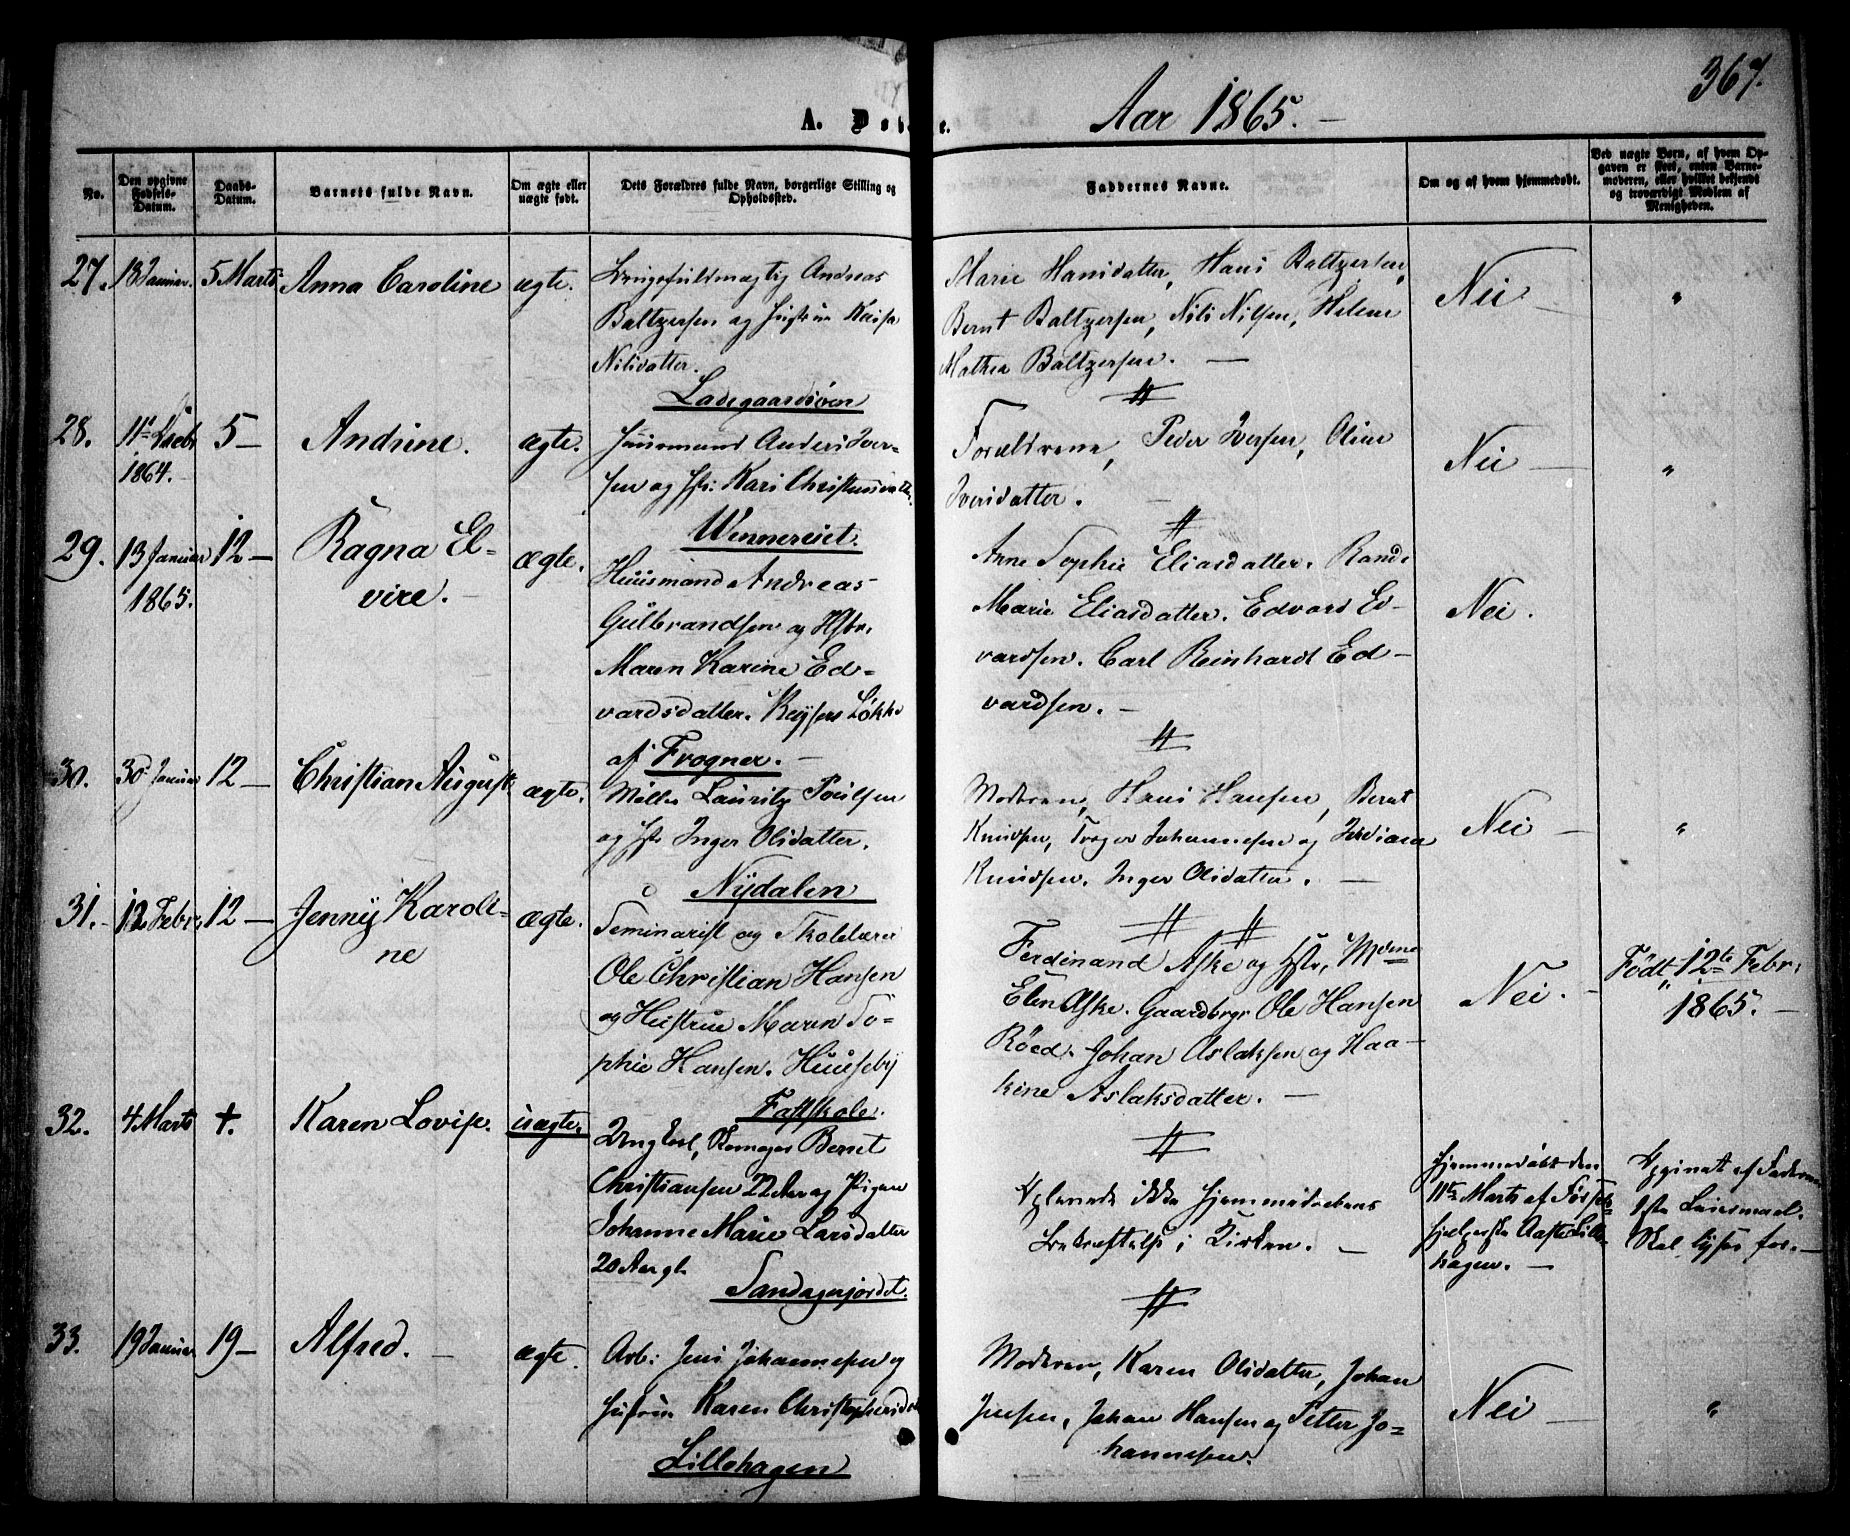 367.
A. Døbte.
Aar 1865. —
No.
Den opgivne Fødsels-Datum.
Daabs-Datum.
Barnets fulde Navn.
Om ægte eller uægte født.
Dets Forældres fulde Navn, borgerlige Stilling og Opholdssted.
Faddernes Navne.
Om og af hvem hjemmedøbt.
Ved uægte Børn, af hvem Opgaven er skeet, enten Barnemoderen, eller hvilket bekjendt og troværdigt Medlem af Menigheden.
27. 18 Januar. 5 Marts Anna Caroline ægte.
Andreas
Baltzersen og Hustrue Kaisa
Nilsdatter.
Ladegaardsøen
Marie Hansdatter, Hans Baltzersen,
Bernt Baltzersen, Nils Nilsen, Helene
Mathea Baltzersen. —
Nei — "
28. 11te 1864. 5 — Andrine. ægte.
Huusmand Anders Iver-
sen og Hstr: Kari Christensdatter,
Wennereiet.
Forældrene, Peder Iversen, Oline
Iversdatter. —
Nei — "
29. 13 Januar 1865. 12 — Ragna El-
vire. — ægte.
Huusmand Andreas
Gulbrandsen og Hstr.
Maren Karine Ed-
vardsdatter. Keysers Løkke
af Frogner. —
Anne Sophie Eliasdatter. Randi
Marie Eliasdatter. Edvard Ed-
vardsen. Carl Reinhardt Ed-
vardsen. —
Nei.
30. 30 Januar 12 — Christian August. ægte.
Møller Lauritz Poulsen
og Hstr Inger Olsdatter.
Nydalen
Moderen, Hans Hansen, Bernt
Knudsen, Torger Johannesen og
Knudsen. Inger Olsdatter. —
Nei — "
31. 12 Febr. 12 — Jenny Karoli-
ne ægte.
Seminarist og Skolelærer
Ole Christian Hansen
og Hustrue Maren So-
phie Hansen. Huuseby
Fastskole.
Ferdinand Aske og Hstr,
Elen Aske. Gaardbrgr Ole Hansen
Røed. Johan Aslaksen og Haa-
kine Aslaksdatter. —
Nei. —
Født 12te Febr.
1865. —
32. 4 Marts +. Karen Lovise. uægte.
Ungkarl, Skomager Bernt
Christiansen 22 Aar og Pigen
Johanne Marie Larsdatter
20 Aar gl.
Sandagerjordet.
Oplevede ikke Hjemmedaabens
Bekræftelse i Kirken. —
Hjemmedøbt den
11te Marts af
Aaste Lille-
hagen. —
Opgivet af Faderen
1ste Leiermaal.
Skal lyses for. —
33. 19 Januar 19 — Alfred. — ægte.
Arb: Jens Johannesen og
Hustrue Karen Christophersd
Lillehagen
Moderen, Karen Olsdatter, Johan
Jensen, Johan Hansen og Petter Jo-
hannesen.
Nei — "